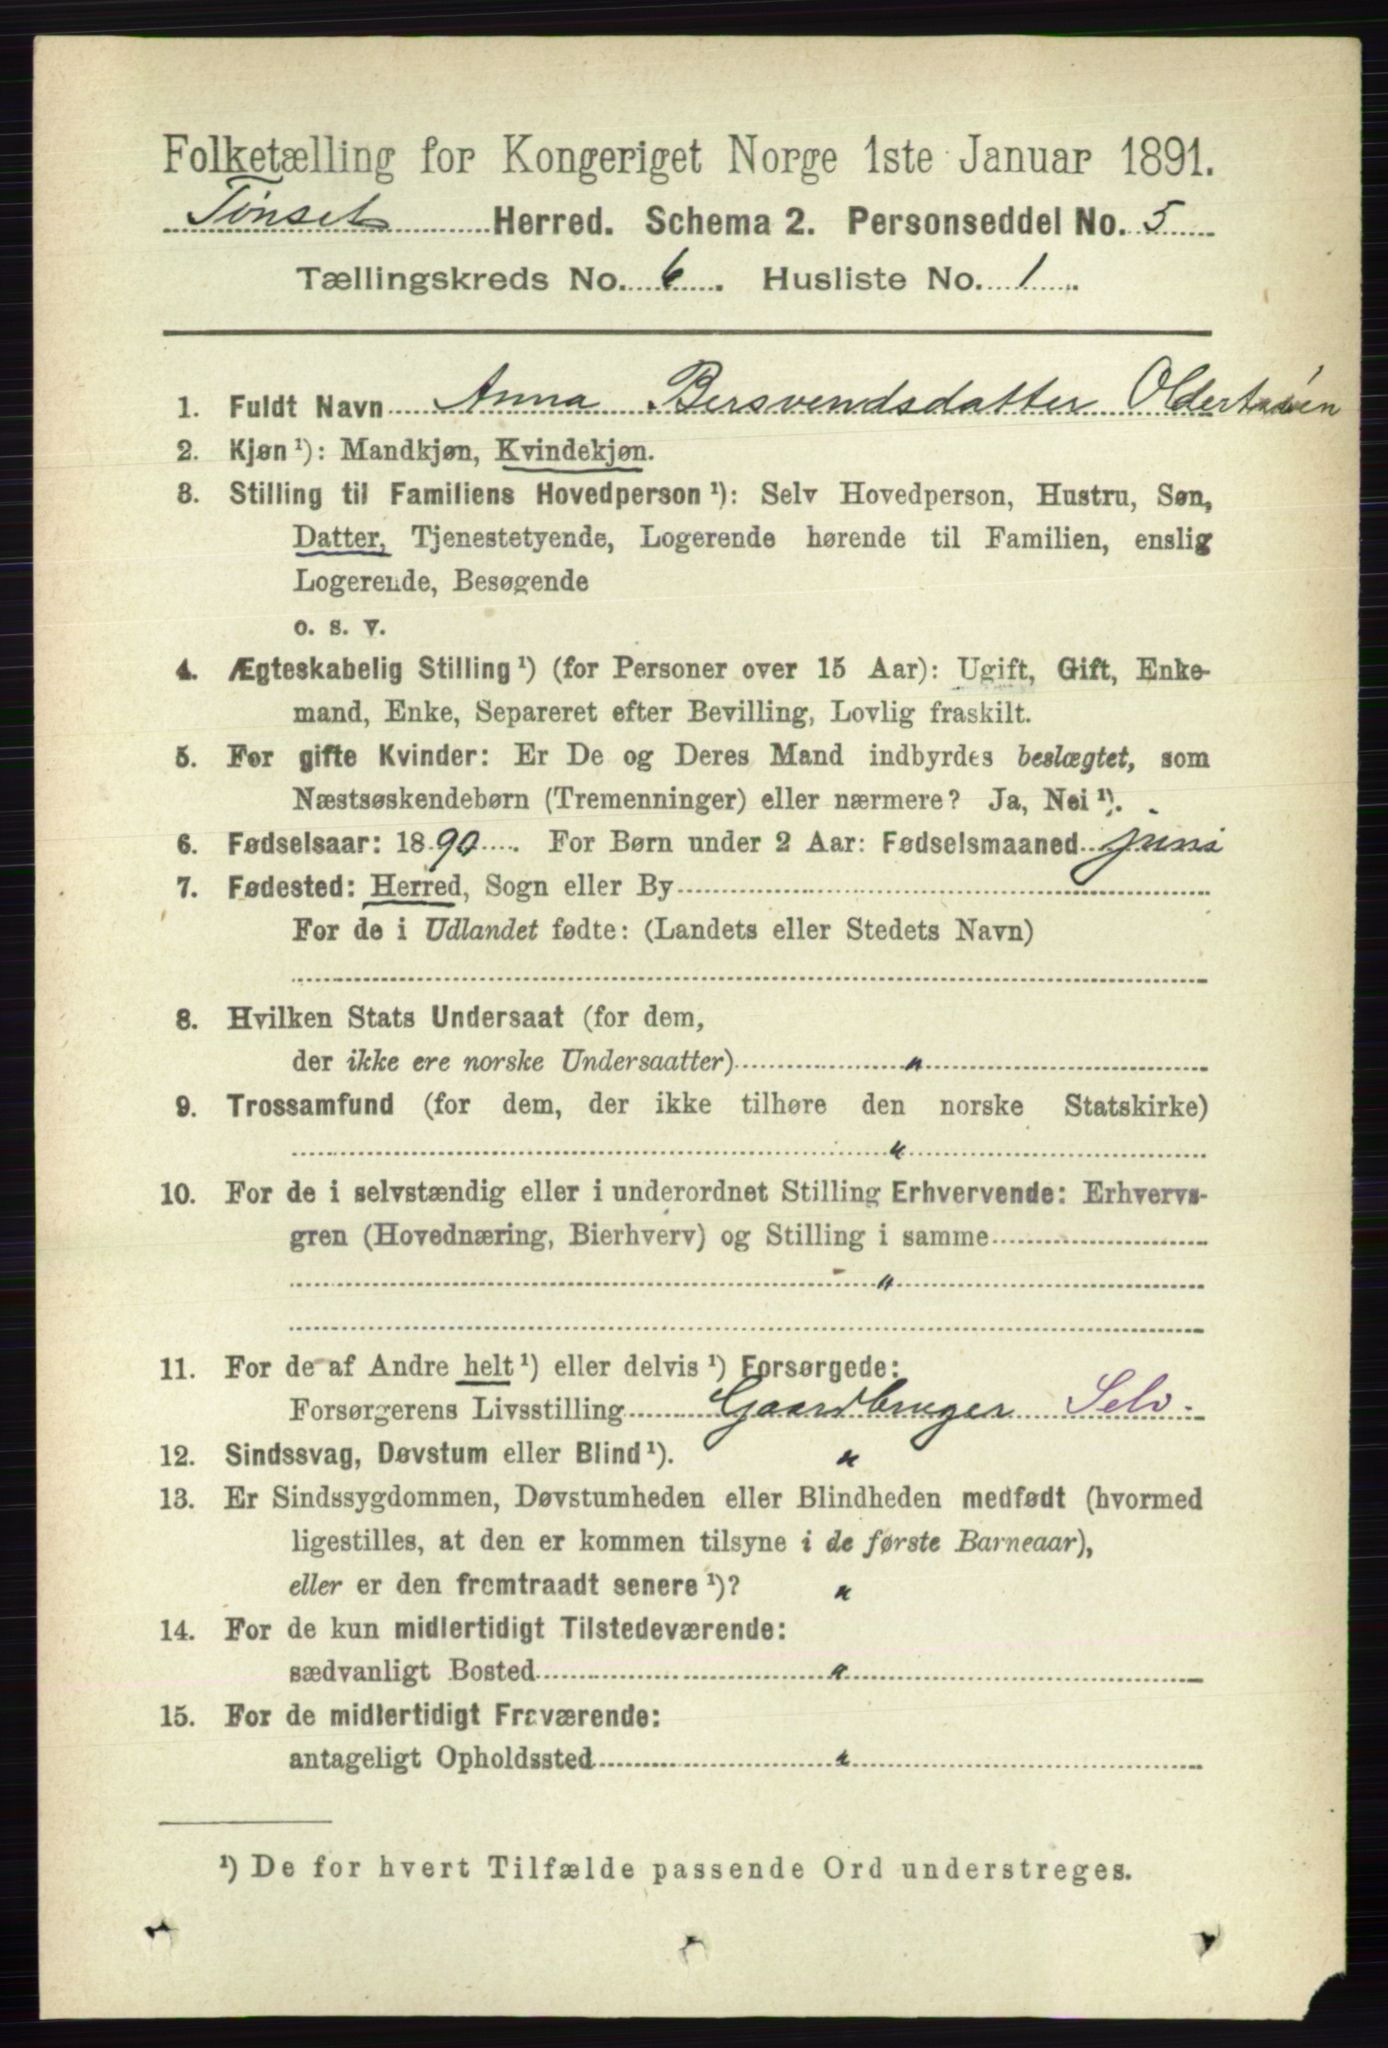 Folketælling for Kongeriget Norge 1ste Januar 1891.
Tønset Herred. Schema 2. Personseddel No. 5
Tællingskreds No. 6. Husliste No. 1.
1. Fuldt Navn Anna Bersvendsdatter
2. Kjøn ¹): Mandkjøn, Kvindekjøn.
3. Stilling til Familiens Hovedperson ¹): Selv Hovedperson, Hustru, Søn,
Datter, Tjenestetyende, Logerende hørende til Familien, enslig
Logerende, Besøgende
o. s. v.
4. Ægteskabelig Stilling ¹) (for Personer over 15 Aar): Ugift, Gift, Enke-
mand, Enke, Separeret efter Bevilling, Lovlig fraskilt.
5. For gifte Kvinder: Er De og Deres Mand indbyrdes beslægtet, som
Næstsøskendebørn (Tremenninger) eller nærmere? Ja, Nei ¹).
6. Fødselsaar: 1890. For Børn under 2 Aar: Fødselsmaaned juni
7. Fødested: Herred, Sogn eller By
For de i Udlandet fødte: (Landets eller Stedets Navn)
8. Hvilken Stats Undersaat (for dem,
der ikke ere norske Undersaatter) "
9. Trossamfund (for dem, der ikke tilhøre den norske Statskirke)
"
10. For de i selvstændig eller i underordnet Stilling Erhvervende: Erhvervs-
gren (Hovednæring, Bierhverv) og Stilling i samme
"
11. For de af Andre helt ¹) eller delvis ¹) Forsørgede:
Forsørgerens Livsstilling Gaardbruger Selv.
12. Sindssvag, Døvstum eller Blind ¹). "
13. Er Sindssygdommen, Døvstumheden eller Blindheden medfødt (hvormed
ligestilles, at den er kommen tilsyne i de første Barneaar),
eller er den fremtraadt senere ¹)? "
14. For de kun midlertidigt Tilstedeværende:
sædvanligt Bosted "
15. For de midlertidigt Fraværende:
antageligt Opholdssted "
¹) De for hvert Tilfælde passende Ord understreges.